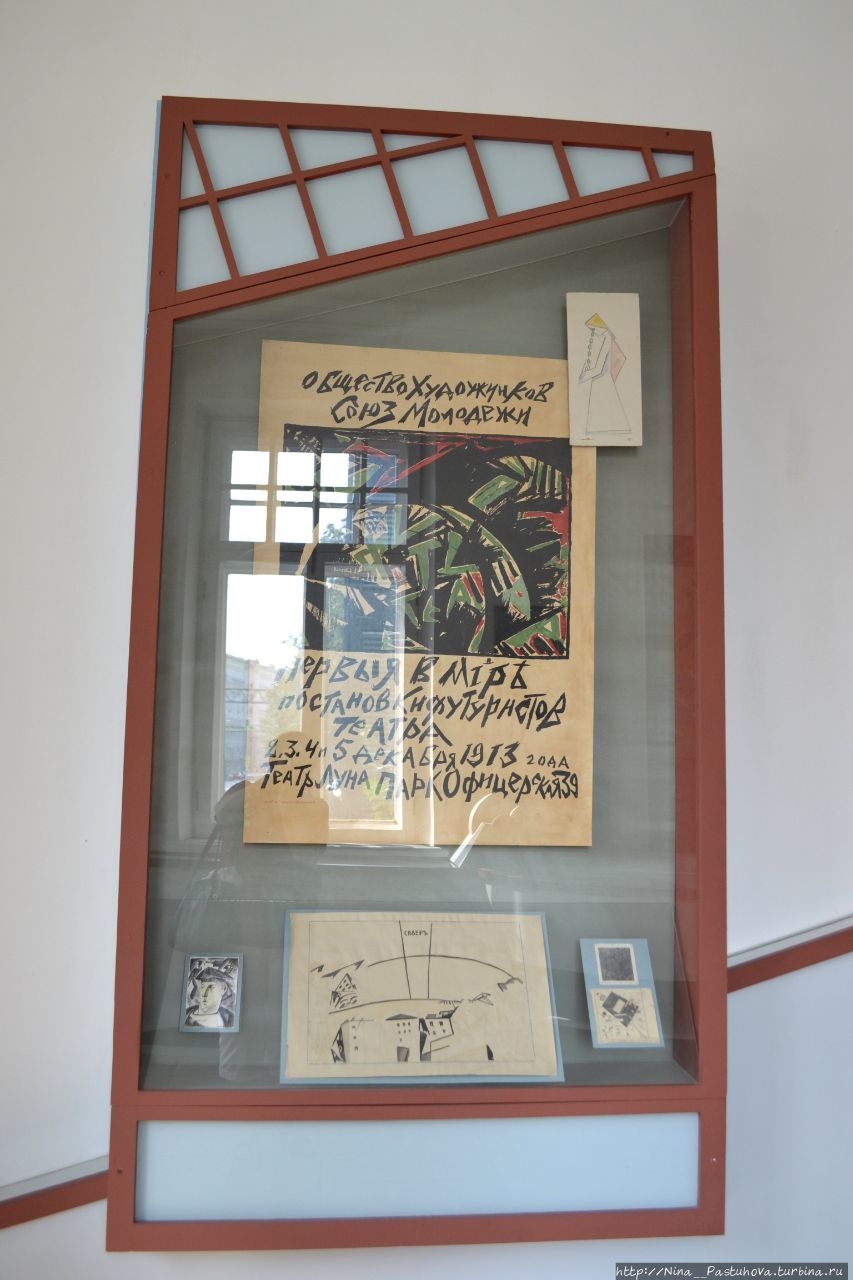 ОбществоХудожников
Союз Молодежи
Первыя в мірѣ
постановки футуристов
театра
2.3.4 и 5 декабря 1913 года
Театр Луна Парк Офицерская 39
СѢВЕРЪ
http://Nina__Pastuhova.turbina.ru